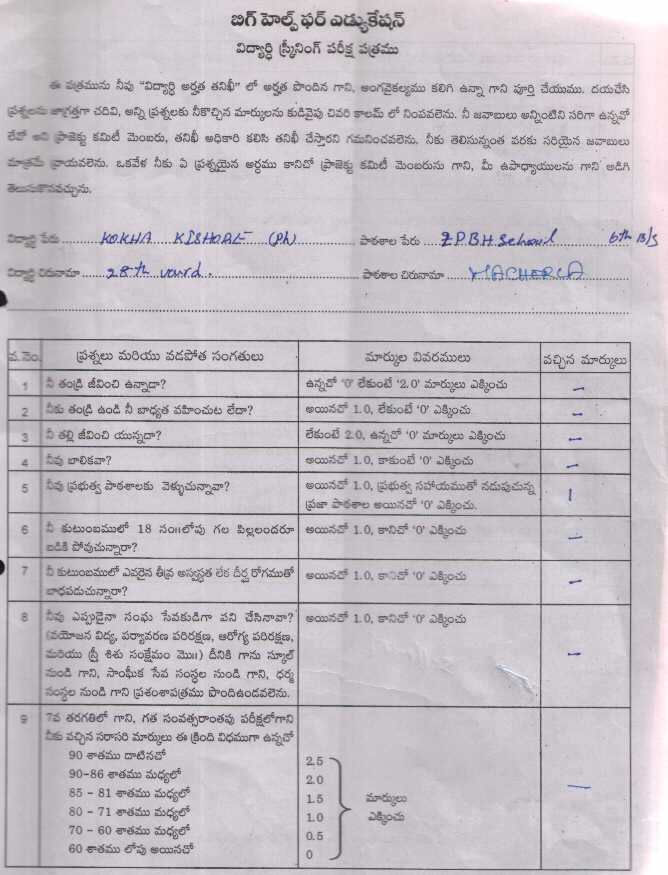 బిగ్ హెల్ప్ ఫర్ ఎడ్యుకేషన్
విద్యార్ధి స్క్రీనింగ్ పరీక్ష పత్రము
ఈ పత్రమును నీవు "విద్యార్ధి అర్హత తనిఖీ" లో అర్హత పొందిన గాని, అంగవైకల్యము కలిగి ఉన్నా గాని పూర్తి చేయుము. దయచేసి
ప్రశ్నలను జాగ్రత్తగా చదివి, అన్ని ప్రశ్నలకు నీకొచ్చిన మార్కులను కుడివైపు చివరి కాలమ్ లో నింపవలెను. నీ జవాబులు అన్నింటిని సరిగా ఉన్నవో
లేవో అని ప్రాజెక్టు కమిటీ మెంబరు, తనిఖీ అధికారి కలిసి తనిఖీ చేస్తారని గమనించవలెను. నీకు తెలిసున్నంత వరకు సరియైన జవాబులు
మాత్రమే వ్రాయవలెను. ఒకవేళ నీకు ఏ ప్రశ్నయైన అర్ధము కానిచో ప్రాజెక్టు కమిటీ మెంబరును గాని, మీ ఉపాధ్యాయులను గాని అడిగి
తెలుసుకొనవచ్చును.
విద్యార్ధి పేరు ..... KOKHA KISHORE (Ph) ..... పాఠశాల పేరు ..... ZPBH School ..... 6th B/S
విద్యార్ధి చిరునామా ..... 28th ward. ..... పాఠశాల చిరునామా ..... MACHERLA
వ.నెం. ప్రశ్నలు మరియు వడపోత సంగతులు మార్కుల వివరములు వచ్చిన మార్కులు
1 నీ తండ్రి జీవించి ఉన్నాడా? ఉన్నచో '0' లేకుంటే '2.0' మార్కులు ఎక్కించు –
2 నీకు తండ్రి ఉండి నీ బాధ్యత వహించుట లేదా? అయినచో 1.0, లేకుంటే '0' ఎక్కించు –
3 నీ తల్లి జీవించి యున్నదా? లేకుంటే 2.0, ఉన్నచో '0' మార్కులు ఎక్కించు –
4 నీవు బాలికవా? అయినచో 1.0, కాకుంటే '0' ఎక్కించు –
5 నీవు ప్రభుత్వ పాఠశాలకు వెళ్ళుచున్నావా? అయినచో 1.0, ప్రభుత్వ సహాయముతో నడుపుచున్న 1
ప్రజా పాఠశాల అయినచో '0' ఎక్కించు.
6 నీ కుటుంబములో 18 సం॥లోపు గల పిల్లలందరూ అయినచో 1.0, కానిచో '0' ఎక్కించు –
బడికి పోవుచున్నారా?
7 నీ కుటుంబములో ఎవరైన తీవ్ర అస్వస్థత లేక దీర్ఘ రోగముతో అయినచో 1.0, కానిచో '0' ఎక్కించు –
బాధపడుచున్నారా?
8 నీవు ఎప్పుడైనా సంఘ సేవకుడిగా పని చేసినావా? అయినచో 1.0, కానిచో '0' ఎక్కించు –
(వయోజన విద్య, పర్యావరణ పరిరక్షణ, ఆరోగ్య పరిరక్షణ,
మరియు స్త్రీ శిశు సంక్షేమం మొ॥) దీనికి గాను స్కూల్
నుండి గాని, సాంఘీక సేవ సంస్థల నుండి గాని, ధర్మ
సంస్థల నుండి గాని ప్రశంశాపత్రము పొందిఉండవలెను.
9 7వ తరగతిలో గాని, గత సంవత్సరాంతపు పరీక్షలోగాని
నీకు వచ్చిన సరాసరి మార్కులు ఈ క్రింది విధముగా ఉన్నచో
90 శాతము దాటినచో 2.5
90-86 శాతము మధ్యలో 2.0
85 - 81 శాతము మధ్యలో 1.5 మార్కులు –
80 - 71 శాతము మధ్యలో 1.0 ఎక్కించు
70 - 60 శాతము మధ్యలో 0.5
60 శాతము లోపు అయినచో 0